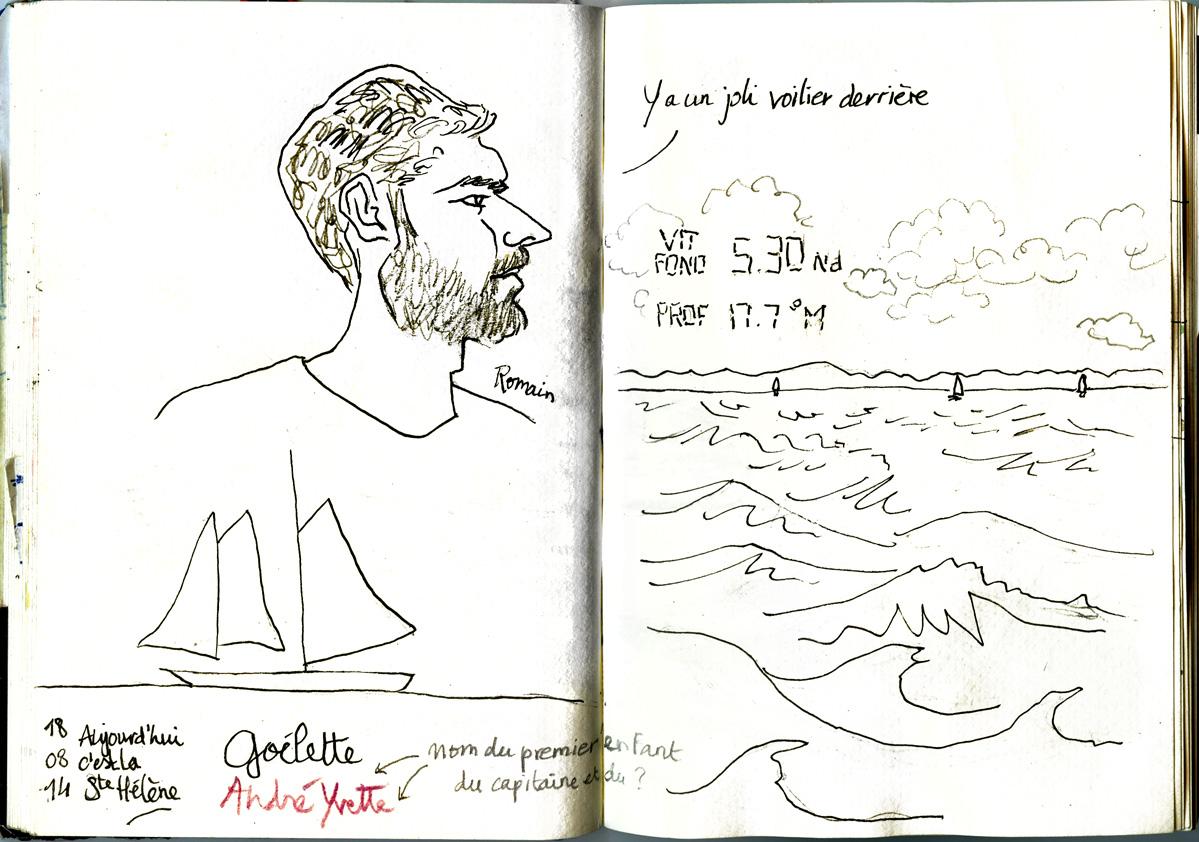 Romain
18 Aujourd'hui
08 c'est la
14 Ste Hélène
Goélette
André Yvette
nom du premier enfant
du capitaine et du ?
Y a un joli voilier derrière
VIT
FOND 5.30 Nd
PROF 17.7 °M